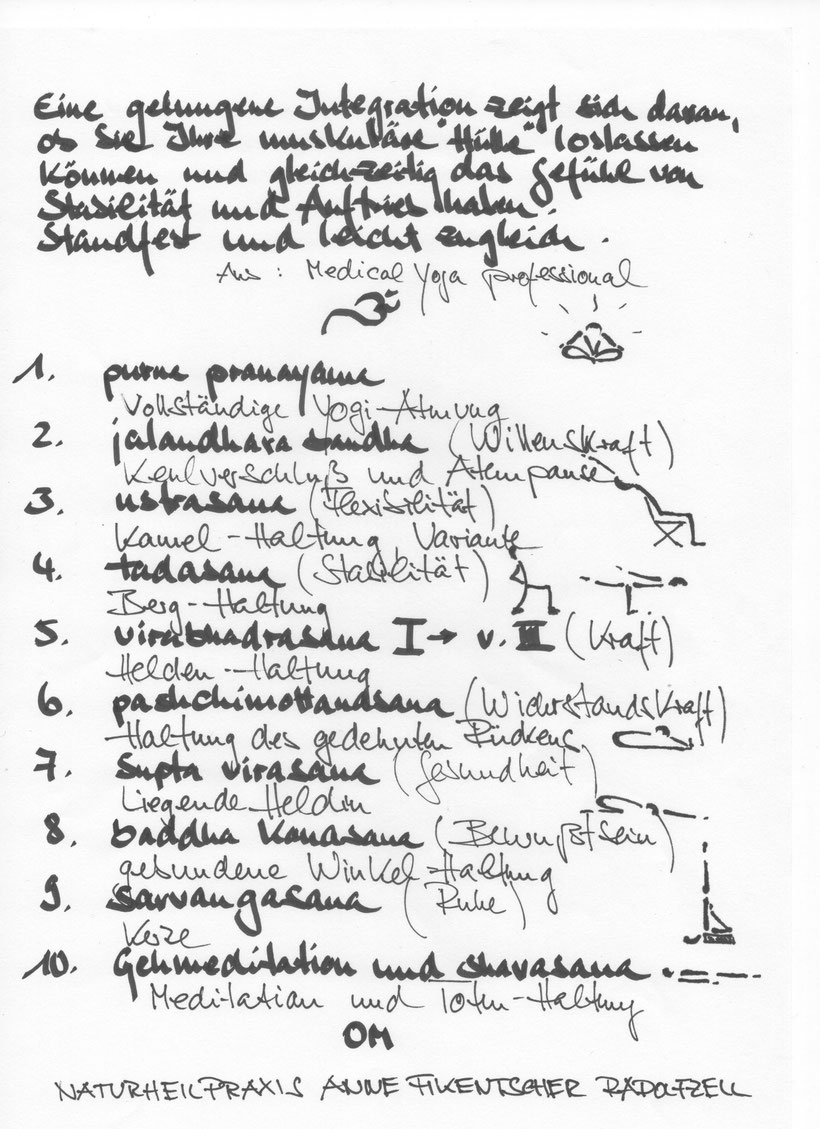 Eine gelungene Integration zeigt sich daran,
ob Sie Ihre muskuläre "Hülle" loslassen
können und gleich-zeitig das Gefühl von
Stabilität und Auftrieb haben.
Standfest und leicht zugleich.
Aus: Medical Yoga professional
1. purna pranayama
Vollständige Yogi-Atmung
2. jalandhara bandha (Willenskraft)
Kehlverschluß und Atempause
3. ustrasana (Flexibilität)
Kamel-Haltung Variante
4. tadasana (Stabilität)
Berg-Haltung
5. virabhadrasana I → v. III (Kraft)
Helden-Haltung
6. pashchimottanasana (Widerstandskraft)
Haltung des gedehnten Rückens
7. Supta virasana (Gesundheit)
Liegende Heldin
8. baddha konasana (Bewußtsein)
gebundene Winkel-Haltung
9. Sarvangasana (Ruhe)
Kerze
10. Gehmeditation und shavasana
Meditation und Toten-Haltung
OM
NATURHEILPRAXIS ANNE FIKENTSCHER RADOLFZELL